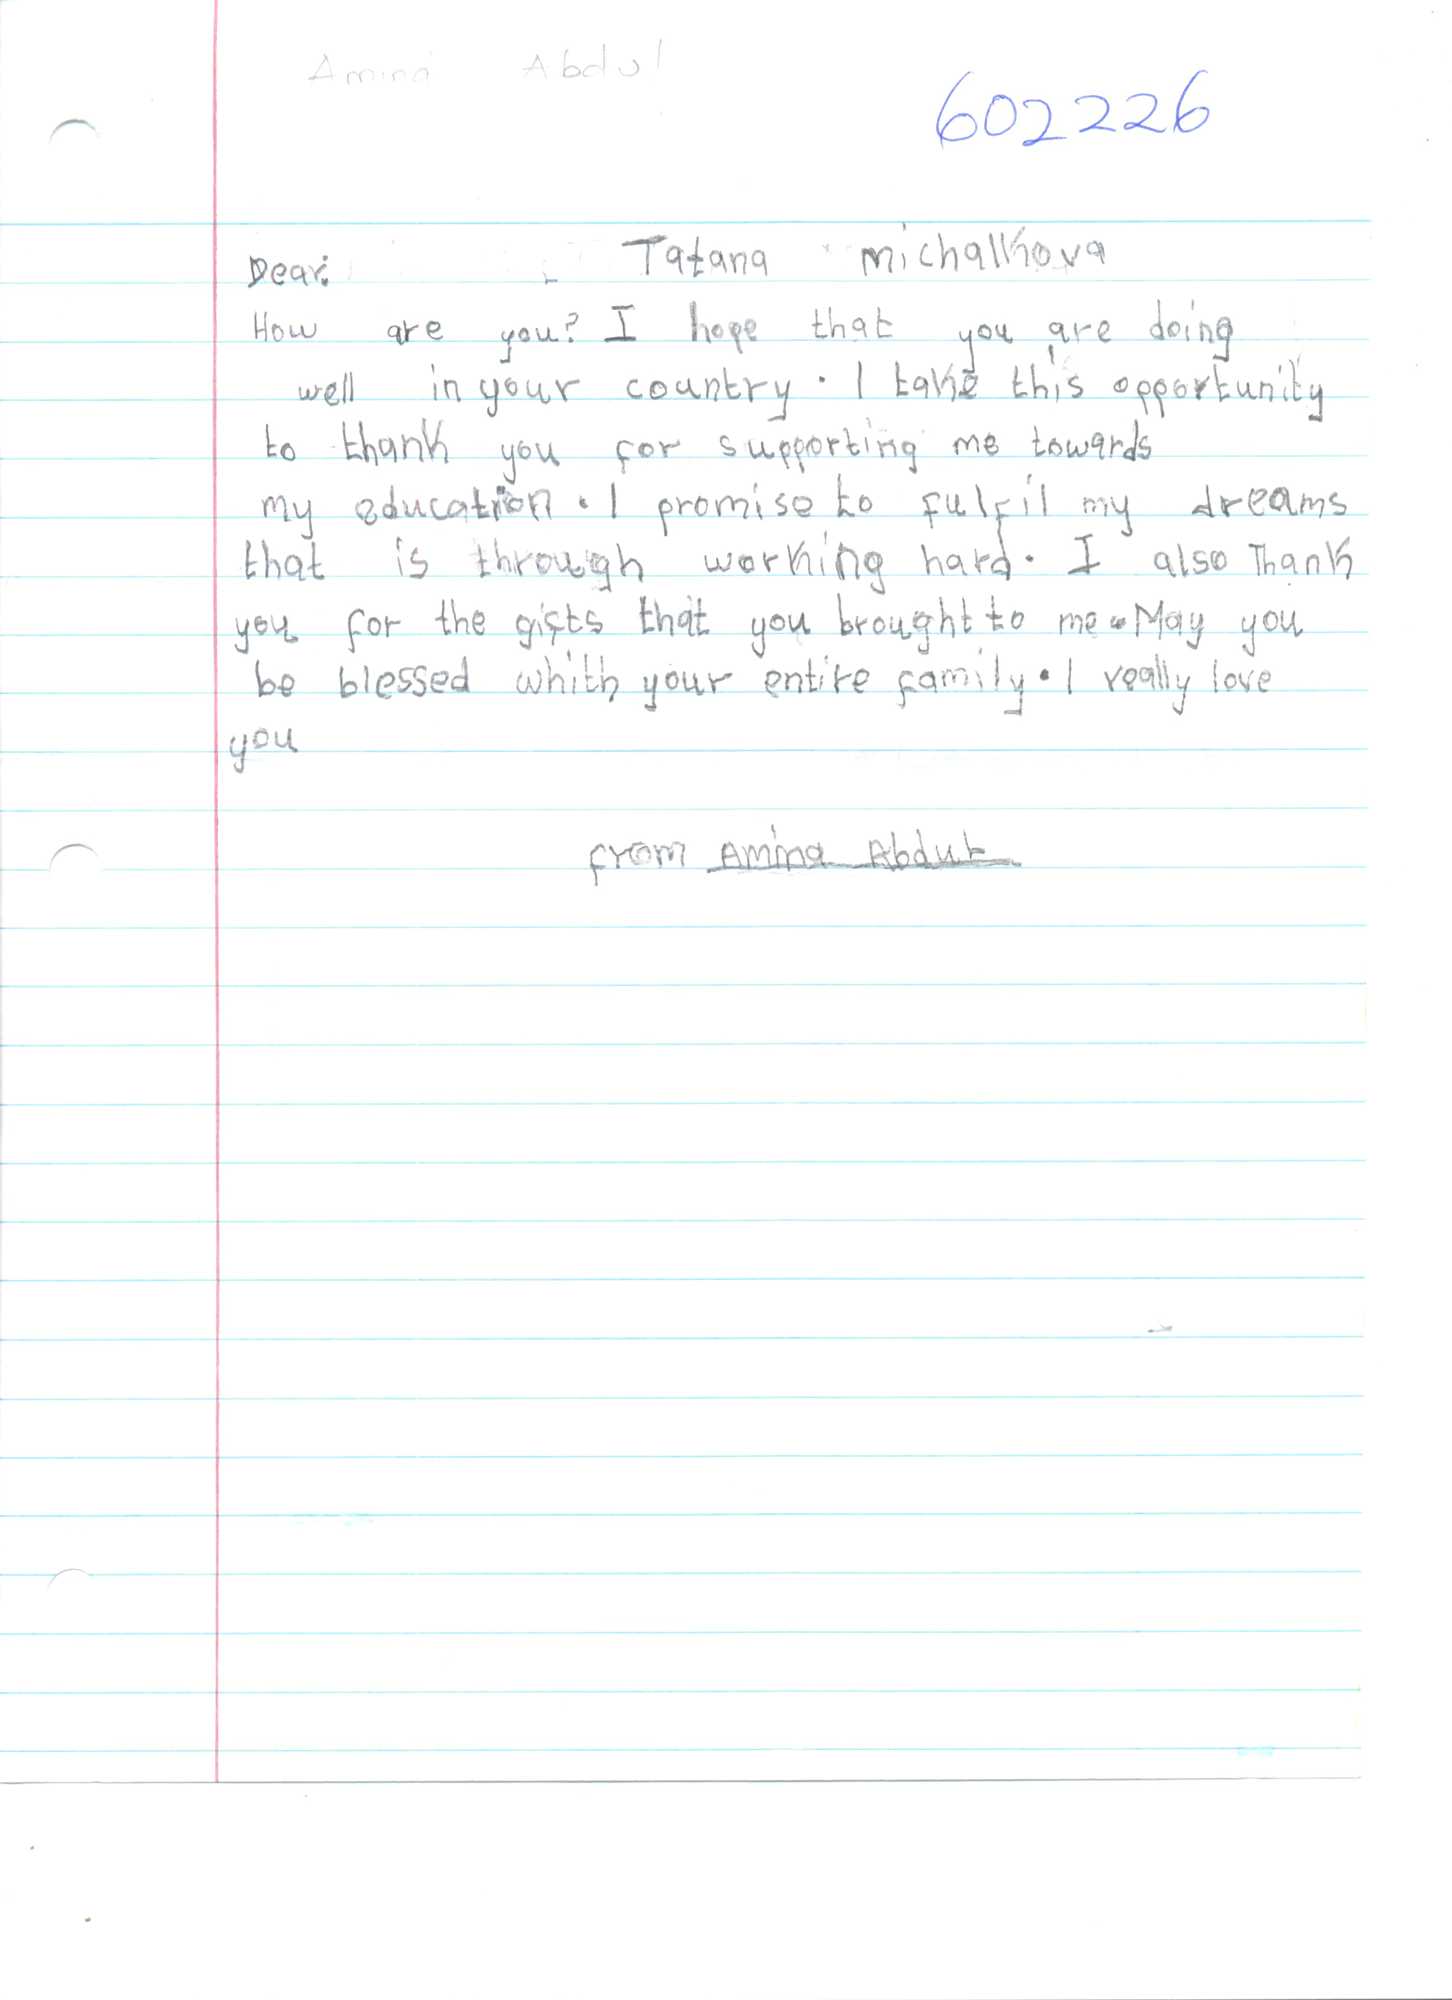 Amina Abdul
602226
Dear: Tatana michalkova
How are you? I hope that you are doing
well in your country. I take this opportunity
to thank you for supporting me towards
my education. I promise to fulfil my dreams
that is through working hard. I also Thank
you for the gifts that you brought to me. May you
be blessed whith your entire family. I really love
you
from Amina Abdul